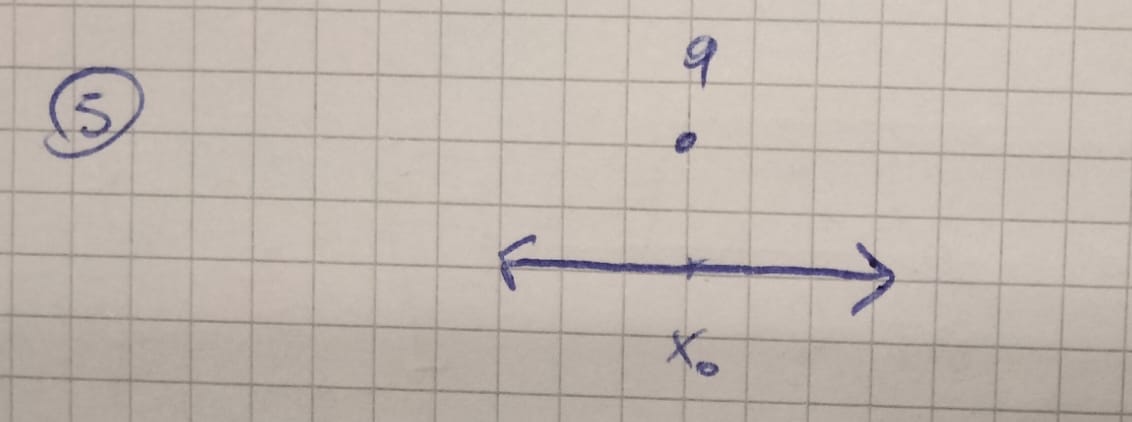 5
q
x₀